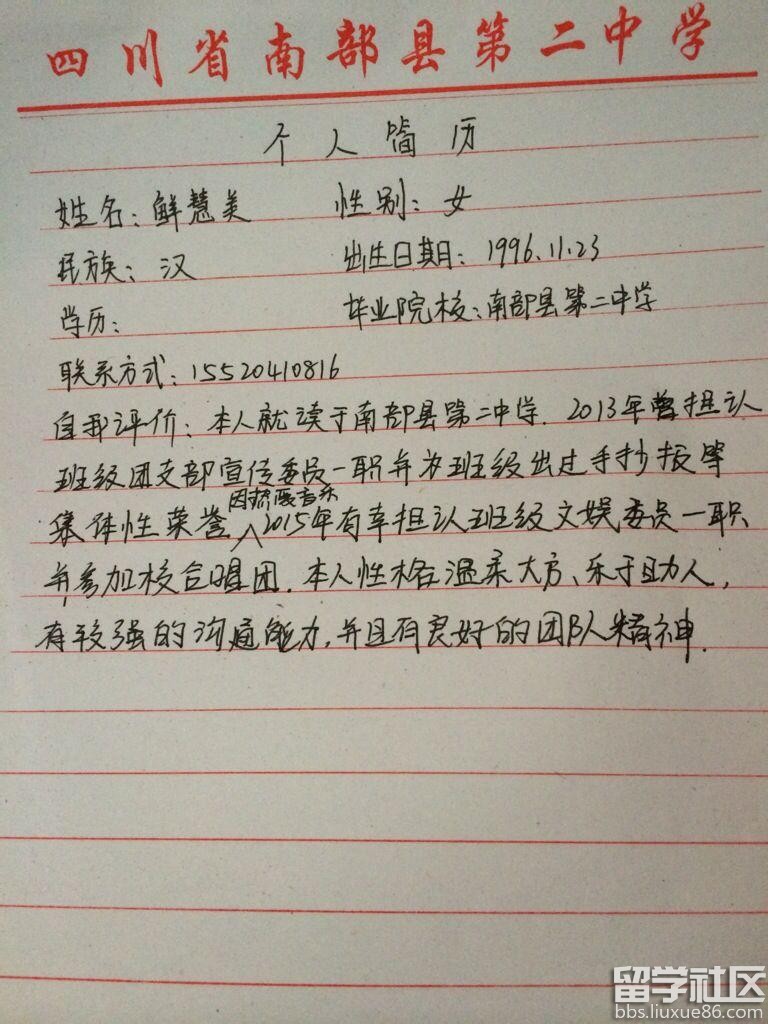 四川省南部县第二中学
个人简历
姓名：鲜慧美 性别：女
民族：汉 出生日期：1996.11.23
学历： 毕业院校：南部县第二中学
联系方式：15520410816
自我评价：本人就读于南部县第二中学.2013年曾担认
班级团支部宣传委员一职并为班级出过手抄报等
因热爱音乐
集体性荣誉2015年有幸担认班级文娱委员一职
并参加校合唱团.本人性格温柔大方、乐于助人，
有较强的沟通能力,并且有良好的团队精神.
留学社区
bbs.liuxue86.com